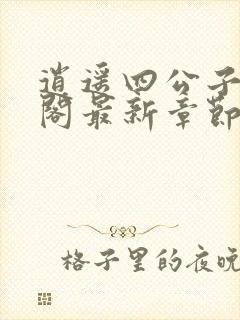 逍遥四公子
阁最新章节
格子里的夜晚